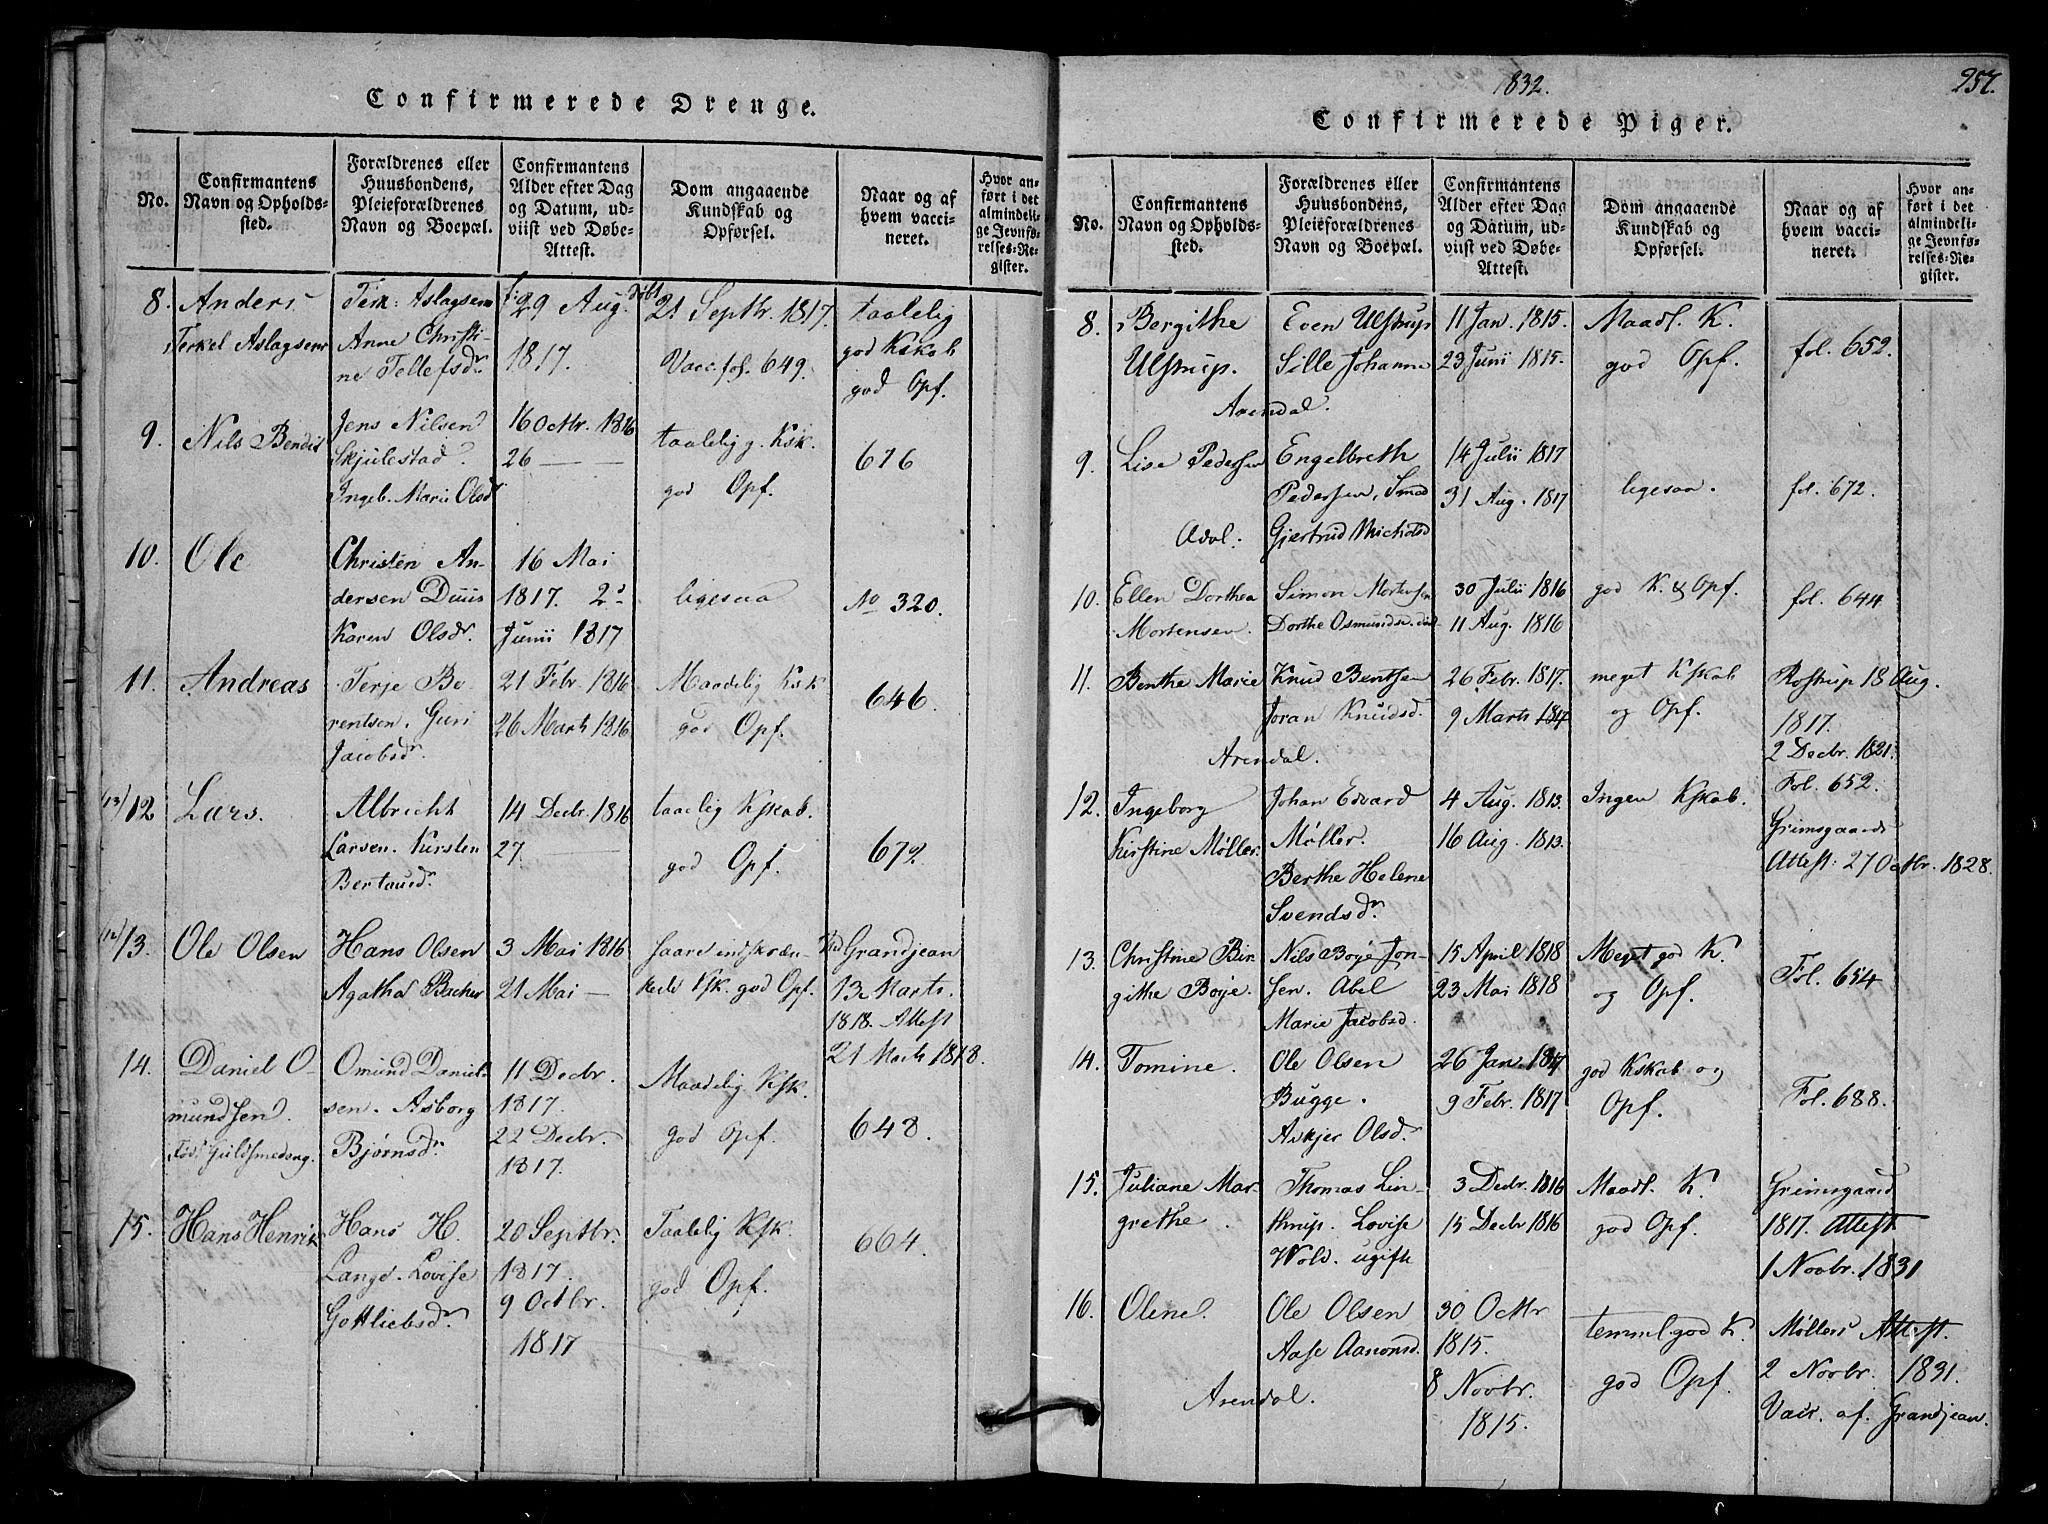 Confirmerede Drenge.
No.
Confirmantens
Navn og Opholds-
sted.
Forældrenes eller
Huusbondens,
Pleieforældrenes
Navn og Boepæl.
Confirmantens
Alder efter Dag
og Datum, ud-
viist ved Døbe-
Attest.
Dom angaaende
Kundskab og
Opførsel.
Naar og af
hvem vacci-
neret.
Hvor an-
ført i det
almindeli-
ge Jevnfø-
relses-Re-
gister.
8.
Anders
Terkel Aslagsen
Terk: Aslagsen
Anne Christi-
ne Tellefsdr
f: 29 Aug. døbt
1817.
21 Septbr. 1817.
Vacc. fol. 649.
taalelig
god Kskab
god Opf.
9.
Nils Bendix
Jens Nilsen
Skjulestad.
Ingeb. Marie Olsd
16 Octbr. 1816
26 —
taalelig g. Ksk.
god Opf.
676
10.
Ole
Christen An-
dersen Duus
Karen Olsdr.
16 Mai
1817. 2d
Junii 1817
ligesaa
No 320.
11.
Andreas
Terje Be
rentsen. Guri
Jacobsdr
21 Febr. 1816
26 Marts 1816
Maadelig Ksk
god Opf.
646.
(13) 12
Lars.
Albrecht
Larsen. Kirsten
14 Decbr. 1816
27 —
taalelig Kskab.
god Opf.
672.
(12) 13.
Ole Olsen
Hans Olsen
Agatha Bacher
3 Mai 1816
21 Mai —
saare indskræn-
kede Ksk. god Opf.
Ved Grandjean
13 Marts.
1818. Attest
21 Marts 1818.
14.
Daniel O-
mundsen.
Omund Daniel-
sen. Asborg
Bjørnsdr
11 Decbr.
1817.
22 Decbr.
1817.
Maadelig Ksk.
god Opf.
648.
15.
Hans Henrik
Hans H.
Lange. Lovise
Gottliebsdr.
20 Septbr.
1817.
9 Octbr.
1817
Taalelig Ksk.
god Opf.
664.
1832.
257.
Confirmerede Piger.
No.
Confirmantens
Navn og Opholds-
sted.
Forældrenes eller
Huusbondens,
Pleieforældrenes
Navn og Boepæl.
Confirmantens
Alder efter Dag
og Datum, ud-
viist ved Døbe-
Attest.
Dom angaaende
Kundskab og
Opførsel.
Naar og af
hvem vacci-
neret.
Hvor an-
ført i det
almindeli-
ge Jevnfø-
relses-Re-
gister.
8.
Bergithe
Ulstrup.
Even Ulstrup
Sille Johanne
Arendal.
11 Jan. 1815.
23 Junii 1815.
Maadl. K.
god Opf.
fol. 652.
9.
Lise Pedersen
Engelbreth
Pedersen,
Gjertrud Michelsd
14 Julii 1817
31 Aug. 1817
ligesaa.
fol. 672.
10.
Ellen Dorthea
Mortensen.
Simon Mortensen
Dorthe Osmundsd.
30 Julii 1816
11 Aug. 1816
god K. & Opf.
fol. 644
11.
Benthe Marie
Knud Bentsen
Joran Knudsd.
Arendal.
26 Febr. 1817.
9 Marts 1817
meget Kskab
og Opf.
Rostrup 18 Aug.
1817.
2 Decbr. 1821.
Fol. 652.
12.
Ingeborg
Kirstine Møller.
Johan Edvard
Møller.
Berthe Helene
Svendsdr.
4 Aug. 1813.
16 Aug. 1813.
Ingen Kskab.
Grimsgaards
Attest: 27 Octbr. 1828.
13.
Christine Bir-
githe Boye.
Nils Boye Jon-
sen. Abel
Marie Jacobsd.
15 April 1818
23 Mai 1818
Meget god K.
og Opf.
Fol. 654
14.
Tomine.
Ole Olsen
Bugge.
Askjer Olsd.
26 Jan. 1817
9 Febr. 1817
god Kskab og
Opf.
Fol. 688.
15.
Juliane Mar-
grethe.
Thomas Lin-
thrup. Lovise
Wold. ugifte
3 Decbr. 1816
15 Decbr 1816
Maadl. K.
god Opf.
Grimsgaard
1817. Attest
1 Novbr. 1831
16.
Olene.
Ole Olsen
Aase Aanonsd.
Arendal.
30 Octbr
1815.
8 Novbr.
1815.
temmel god K.
god Opf.
Møllers Attest.
2 Novbr. 1831.
Vacc. af. Grandjean.